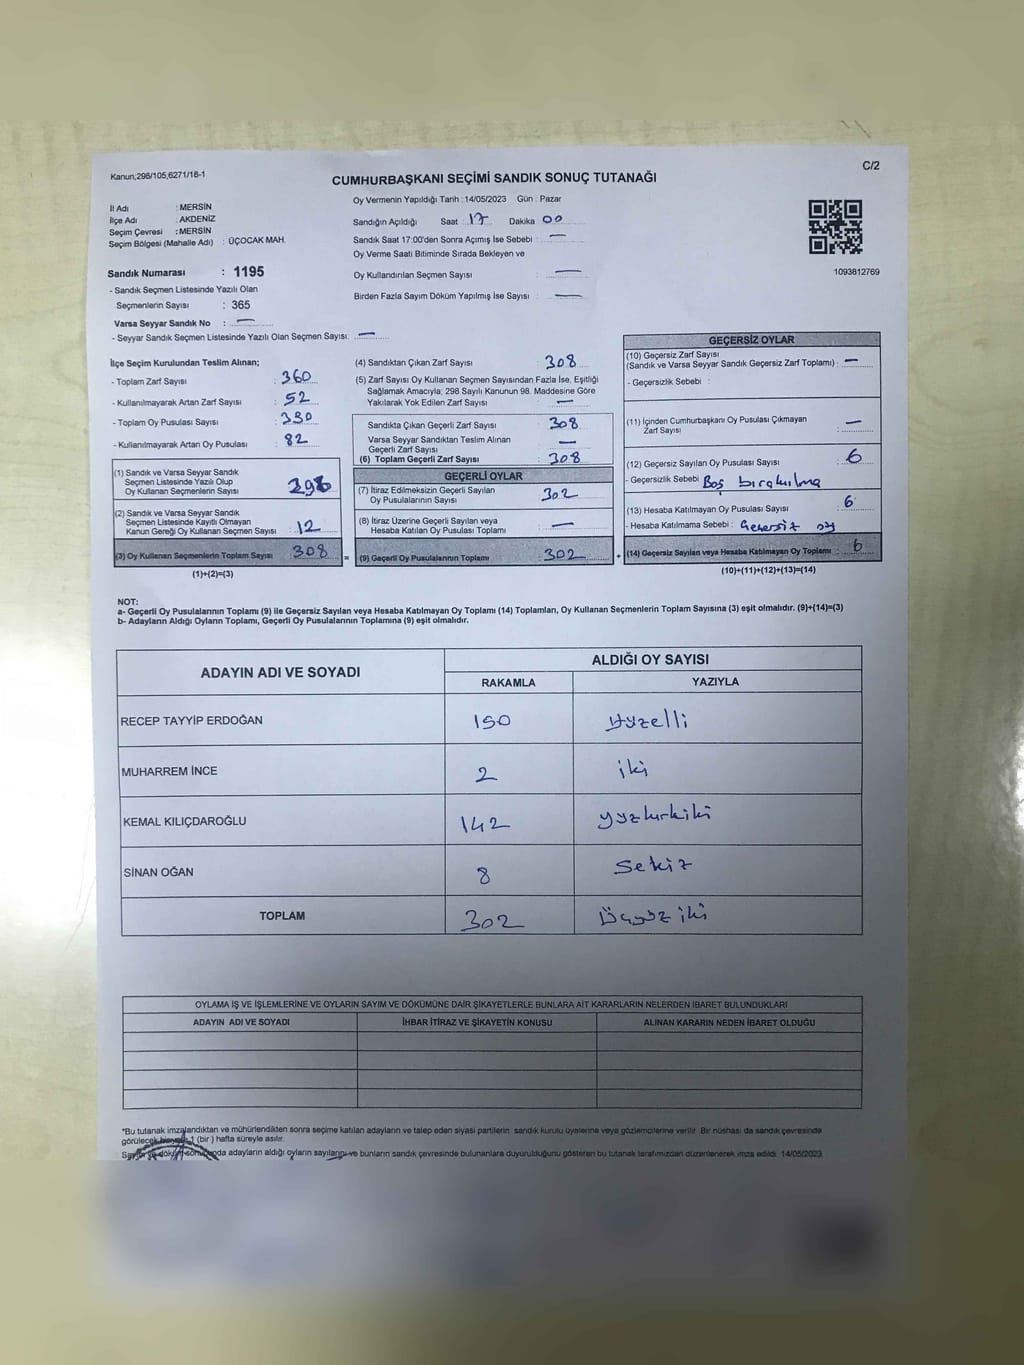 Kanun;298/105,6271/18-1
C/2
CUMHURBAŞKANI SEÇİMİ SANDIK SONUÇ TUTANAĞI
İl Adı : MERSİN
İlçe Adı : AKDENİZ
Seçim Çevresi : MERSİN
Seçim Bölgesi (Mahalle Adı) : ÜÇOCAK MAH.
Sandık Numarası : 1195
- Sandık Seçmen Listesinde Yazılı Olan
Seçmenlerin Sayısı : 365
Varsa Seyyar Sandık No : —
- Seyyar Sandık Seçmen Listesinde Yazılı Olan Seçmen Sayısı: —
Oy Vermenin Yapıldığı Tarih :14/05/2023 Gün : Pazar
Sandığın Açıldığı Saat : 17 Dakika 00
Sandık Saat 17:00'den Sonra Açımış İse Sebebi : —
Oy Verme Saati Bitiminde Sırada Bekleyen ve
Oy Kullandırılan Seçmen Sayısı : —
Birden Fazla Sayım Döküm Yapılmış İse Sayısı : —
1093812769
İlçe Seçim Kurulundan Teslim Alınan;
- Toplam Zarf Sayısı : 360
- Kullanılmayarak Artan Zarf Sayısı : 52
- Toplam Oy Pusulası Sayısı :
- Kullanılmayarak Artan Oy Pusulası : 82
(1) Sandık ve Varsa Seyyar Sandık
Seçmen Listesinde Yazılı Olup
Oy Kullanan Seçmenlerin Sayısı : 296
(2) Sandık ve Varsa Seyyar Sandık
Seçmen Listesinde Kayıtlı Olmayan
Kanun Gereği Oy Kullanan Seçmen Sayısı : 12
(3) Oy Kullanan Seçmenlerin Toplam Sayısı : 308
(1)+(2)=(3)
(4) Sandıktan Çıkan Zarf Sayısı : 308
(5) Zarf Sayısı Oy Kullanan Seçmen Sayısından Fazla İse, Eşitliği
Sağlamak Amacıyla; 298 Sayılı Kanunun 98. Maddesine Göre
Yakılarak Yok Edilen Zarf Sayısı : —
Sandıkta Çıkan Geçerli Zarf Sayısı : 308
Varsa Seyyar Sandıktan Teslim Alınan
Geçerli Zarf Sayısı : —
(6) Toplam Geçerli Zarf Sayısı : 308
GEÇERLİ OYLAR
(7) İtiraz Edilmeksizin Geçerli Sayılan
Oy Pusulalarının Sayısı : 302
(8) İtiraz Üzerine Geçerli Sayılan veya
Hesaba Katılan Oy Pusulası Toplamı : —
= (9) Geçerli Oy Pusulalarının Toplamı : 302
GEÇERSİZ OYLAR
(10) Geçersiz Zarf Sayısı
(Sandık ve Varsa Seyyar Sandık Geçersiz Zarf Toplamı) : —
- Geçersizlik Sebebi :
(11) İçinden Cumhurbaşkanı Oy Pusulası Çıkmayan
Zarf Sayısı : —
(12) Geçersiz Sayılan Oy Pusulası Sayısı : 6
- Geçersizlik Sebebi : Boş bırakılma
(13) Hesaba Katılmayan Oy Pusulası Sayısı : 6
- Hesaba Katılmama Sebebi : Geçersiz oy
+ (14) Geçersiz Sayılan veya Hesaba Katılmayan Oy Toplamı : 6
(10)+(11)+(12)+(13)=(14)
NOT:
a- Geçerli Oy Pusulalarının Toplamı (9) ile Geçersiz Sayılan veya Hesaba Katılmayan Oy Toplamı (14) Toplamları, Oy Kullanan Seçmenlerin Toplam Sayısına (3) eşit olmalıdır. (9)+(14)=(3)
b- Adayların Aldığı Oyların Toplamı, Geçerli Oy Pusulalarının Toplamına (9) eşit olmalıdır.
ADAYIN ADI VE SOYADI
ALDIĞI OY SAYISI
RAKAMLA YAZIYLA
RECEP TAYYİP ERDOĞAN 150 yüzelli
MUHARREM İNCE 2 iki
KEMAL KILIÇDAROĞLU 142 yüzkırkiki
SİNAN OĞAN 8 Sekiz
TOPLAM 302 Üçyüz iki
OYLAMA İŞ VE İŞLEMLERİNE VE OYLARIN SAYIM VE DÖKÜMÜNE DAİR ŞİKAYETLERLE BUNLARA AİT KARARLARIN NELERDEN İBARET BULUNDUKLARI
ADAYIN ADI VE SOYADI İHBAR İTİRAZ VE ŞİKAYETİN KONUSU ALINAN KARARIN NEDEN İBARET OLDUĞU
*Bu tutanak imzalandıktan ve mühürlendikten sonra seçime katılan adayların ve talep eden siyasi partilerin sandık kurulu üyelerine veya gözlemcilerine verilir. Bir nüshası da sandık çevresinde
görülecek 1 (bir) hafta süreyle asılır.
adayların aldığı oyların sayılarını ve bunların sandık çevresinde bulunanlara duyurulduğunu gösteren bu tutanak tarafımızdan düzenlenerek imza edildi. 14/05/2023